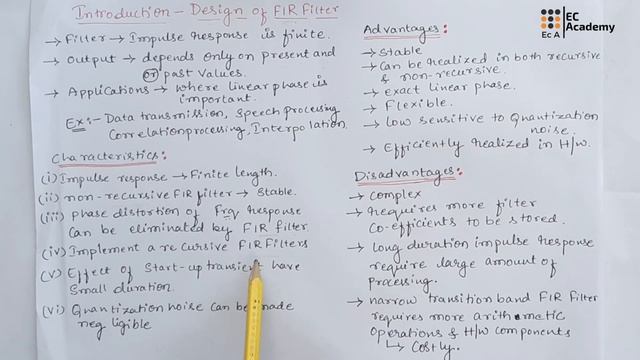 Introduction - Design of FIR Filter
→ Filter → Impulse Response is finite.
→ Output → depends only on present and
(or) past values.
→ Applications → where linear phase is
important.
Ex:- Data transmission, Speech processing
Correlation processing, Interpolation.
Characteristics:
(i) Impulse response → Finite length.
(ii) non-recursive FIR filter → Stable.
(iii) phase distortion of Frq Response
can be eliminated by FIR filter
(iv) Implement a recursive FIR Filters
(v) Effect of Start-up transient have
Small duration
(vi) Quantization noise can be made
neg ligible
EC
Academy
Ec A
Advantages:
→ Stable
→ Can be realized in both recursive
& non-recursive.
→ exact linear phase.
→ Flexible.
→ Low sensitive to Quantization
noise.
→ Efficiently Realized in H/w.
Disadvantages:
→ Complex
→ Requires more filter
Co-efficients to be stored.
→ long duration impulse Response
require large amount of
processing.
→ narrow transition band FIR Filter
requires more arith matic
Operations & H/w components
↳ Costly.